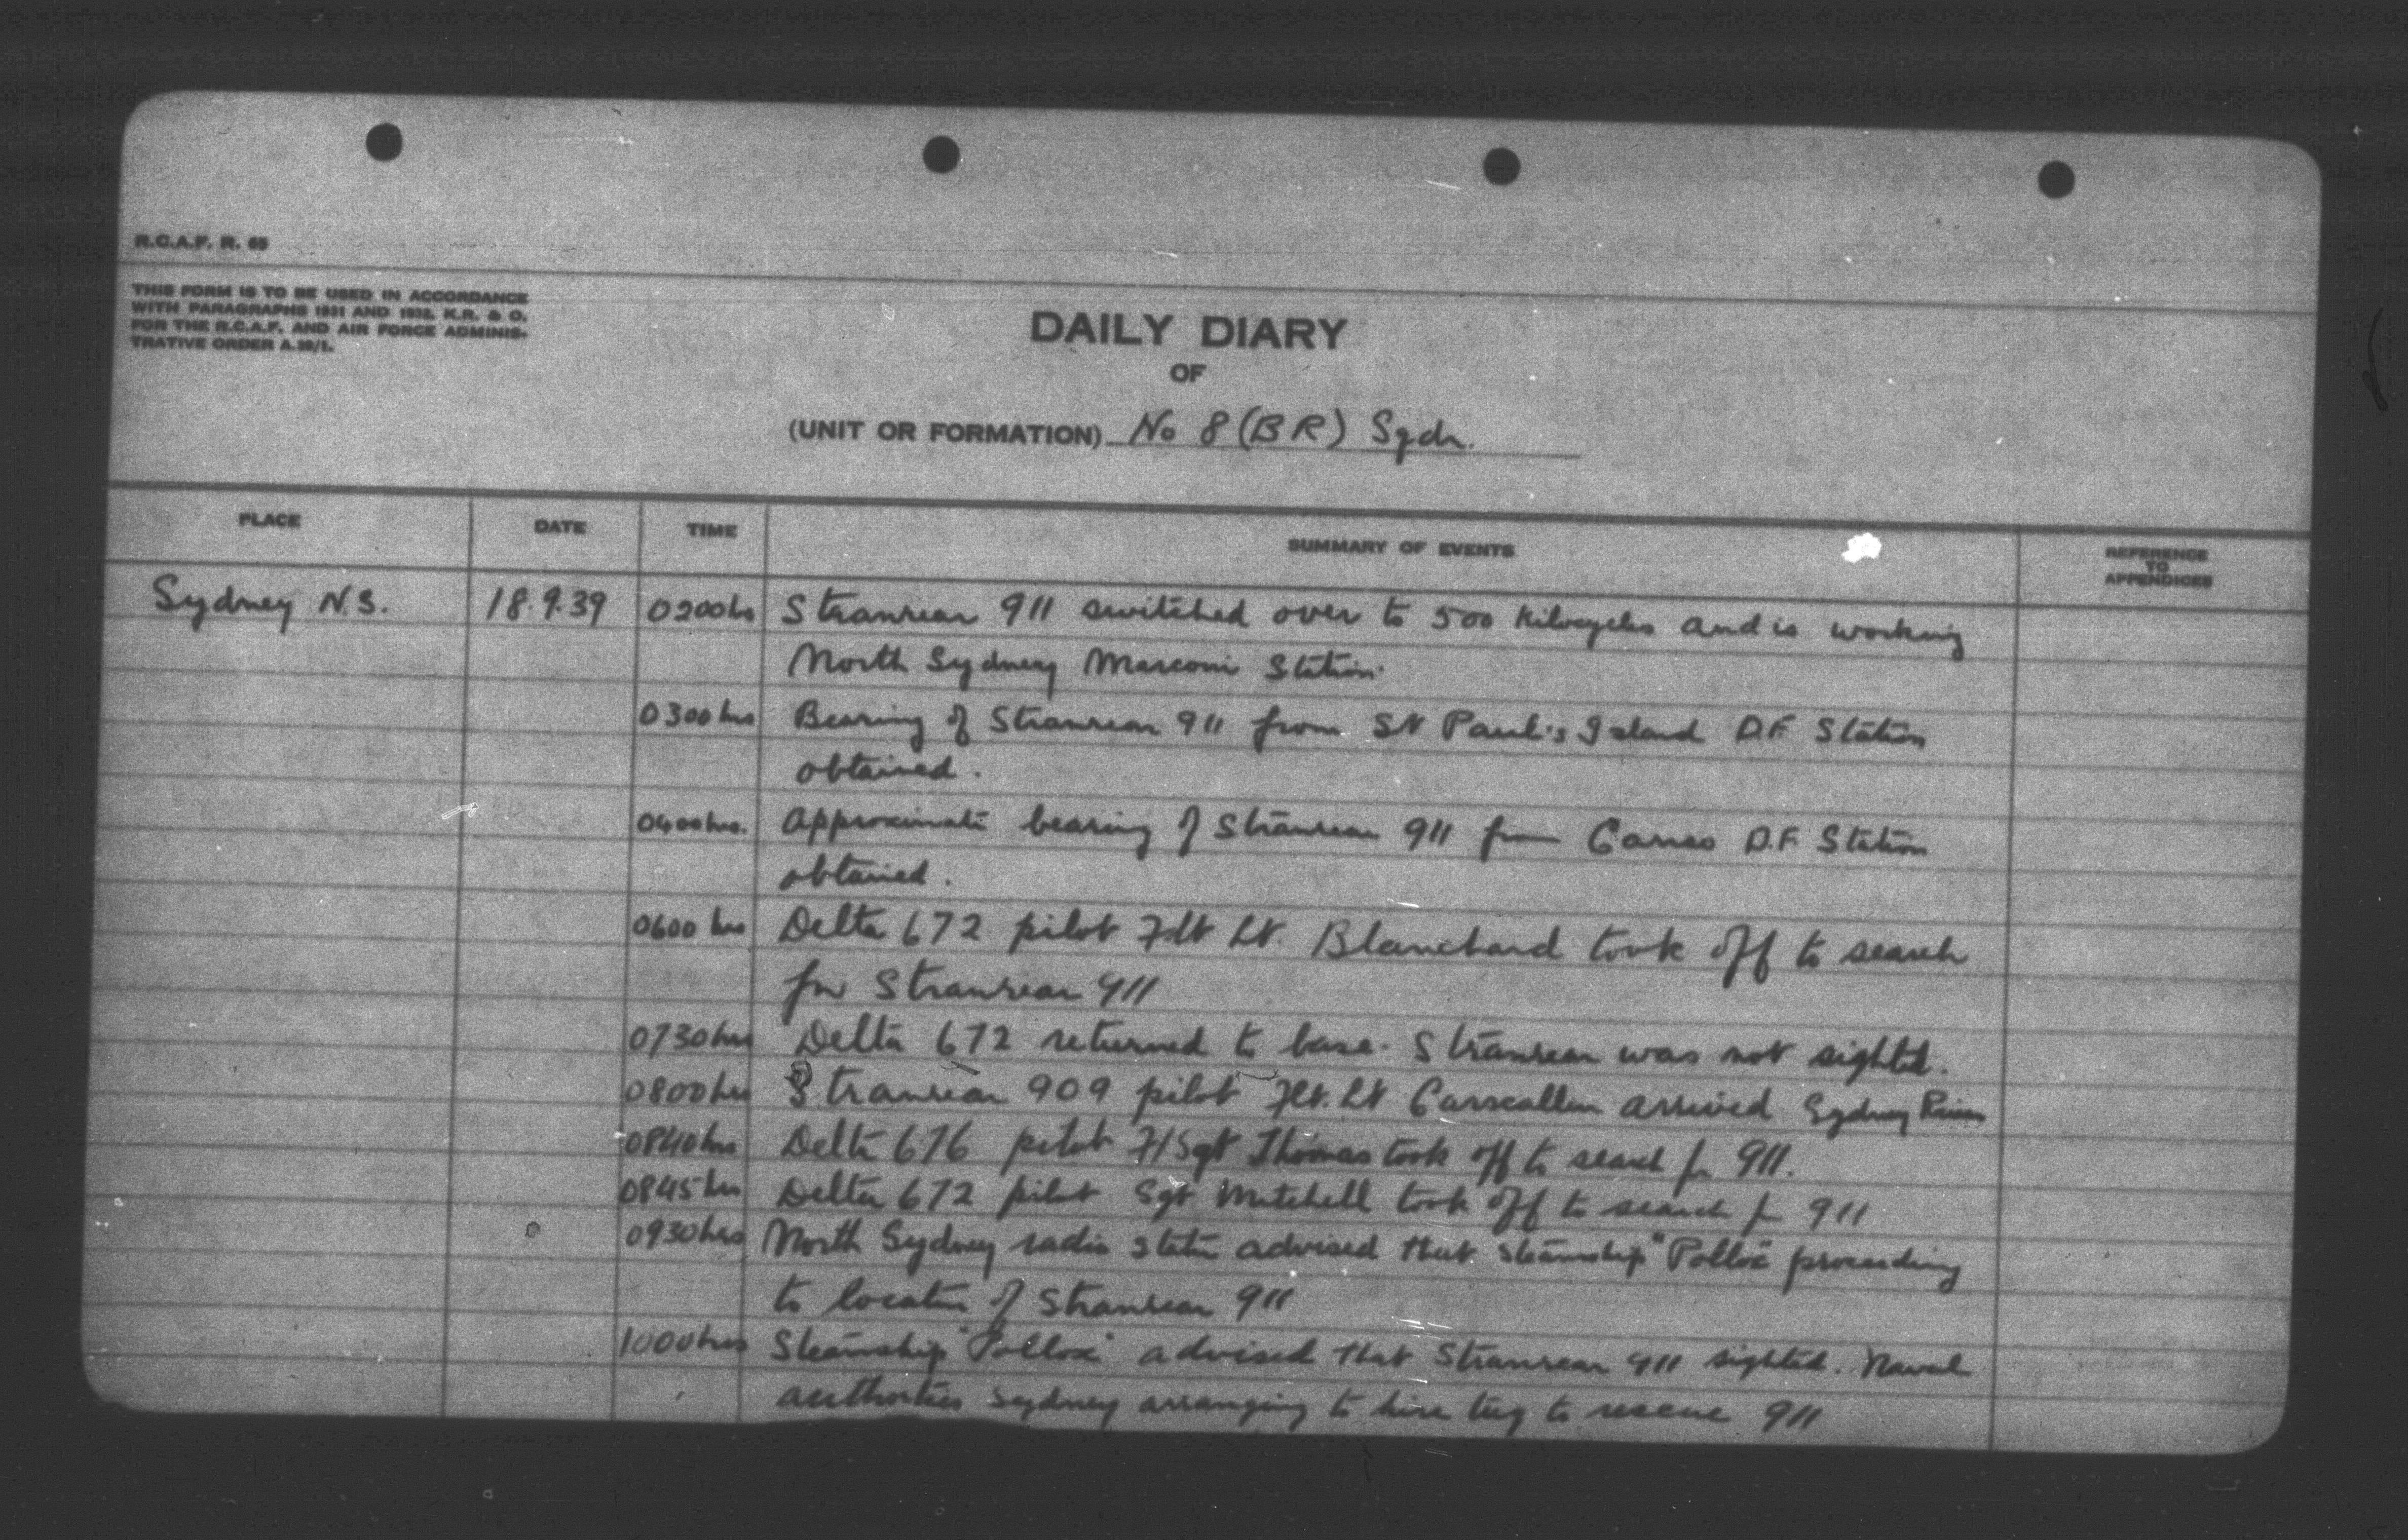 R.C.A.F. R. 65
THIS FORM IS TO BE USED IN ACCORDANCE
WITH PARAGRAPHS 1931 AND 1932, K.R. & O.
FOR THE R.C.A.F. AND AIR FORCE ADMINIS-
TRATIVE ORDER A.
DAILY DIARY
OF
(UNIT OR FORMATION) No 8 (BR) Sqdn.
PLACE DATE TIME SUMMARY OF EVENTS REFERENCE TO APPENDICES
Sydney N.S. 18.9.39 0200hs Stranraer 911 switched over to 500 Kilocycles and is working
North Sydney Marconi Station.
0300hrs Bearing of Stranraer 911 from St Paul's Island D.F. Station
obtained.
0400hrs. Approximate bearing of Stranraer 911 from Canso D.F. Station
obtained.
0600 hrs Delta 672 pilot Flt Lt. Blanchard took off to search
for Stranraer 911
0730hrs Delta 672 returned to base. Stranraer was not sighted.
0800hrs Stranraer 909 pilot Flt. Lt Carscallen arrived Sydney River
0840hrs Delta 676 pilot F/Sgt Thomas took off to search for 911.
0845hrs Delta 672 pilot Sgt Mitchell took off to search for 911
0930hrs North Sydney radio station advised that steamship "Pollox" proceeding
to location of Stranraer 911
1000hrs Steamship "Pollox" advised that Stranraer 911 sighted. Naval
authorities Sydney arranging to hire tug to rescue 911